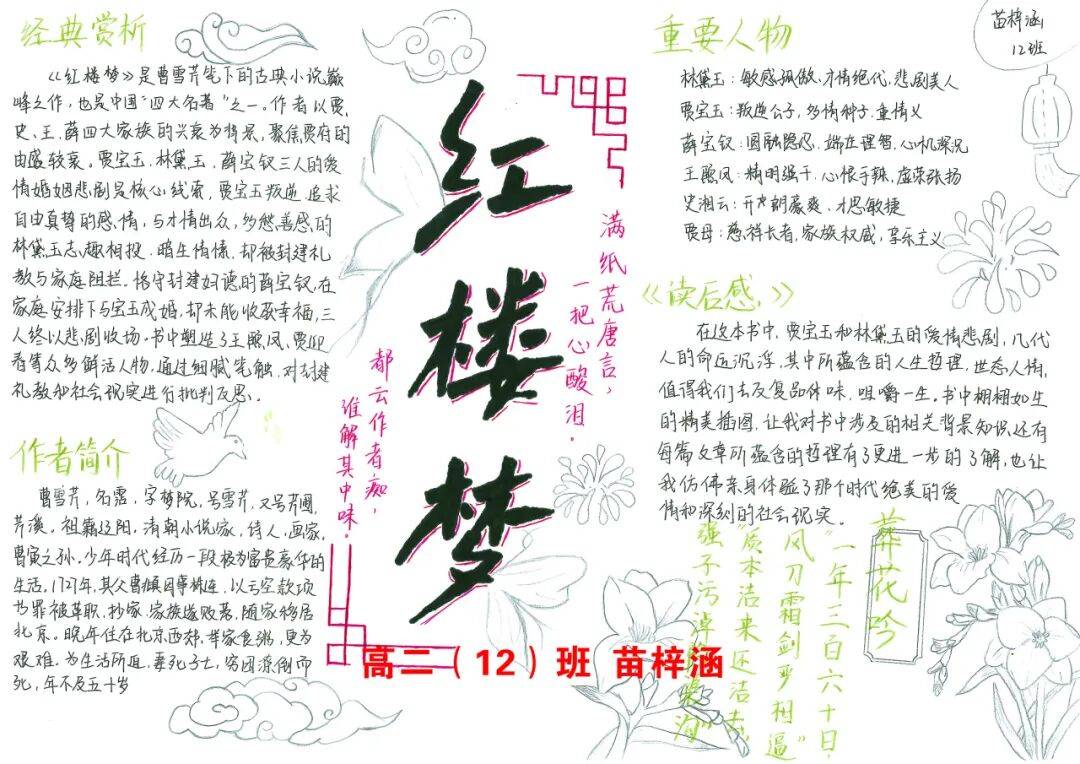 经典赏析
《红楼梦》是曹雪芹笔下的古典小说巅
峰之作，也是中国“四大名著”之一。作者以贾、
史、王、薛四大家族的兴衰为背景，聚焦贾府的
由盛转衰。贾宝玉、林黛玉、薛宝钗三人的爱
情婚姻悲剧是核心线索，贾宝玉叛逆追求
自由真挚的感情，与才情出众，多愁善感的
林黛玉志趣相投，暗生情愫，却被封建礼
教与家庭阻拦。恪守封建妇德的薛宝钗，在
家庭安排下与宝玉成婚，却未能收获幸福，三
人终以悲剧收场。书中塑造了王熙凤、贾
等众多鲜活人物，通过细腻笔触，对封建
礼教和社会现实进行批判反思。
作者简介
曹雪芹，名霑，字梦阮，号雪芹，又号芹圃，
芹溪。祖籍辽阳，清朝小说家，诗人，画家，
曹寅之孙。少年时代经历一段极为富贵豪华的
生活，1727年，其父曹頫因事株连，以亏空款项
为罪被革职，抄家，家族遂败落，随家移居
北京。晚年住在北京西郊，举家食粥，更为
艰难。为生活所迫，妻死子亡，穷困潦倒而
死，年不及五十岁
红楼梦
满纸荒唐言，
一把心酸泪。
都云作者痴，
谁解其中味。
苗梓涵
12班
重要人物
林黛玉：敏感孤傲、才情绝代，悲剧美人
贾宝玉：叛逆公子，多情种子，重情义
薛宝钗：圆融隐忍，端庄理智，心机深沉
王熙凤：精明强干，心狠手辣，虚荣张扬
史湘云：开朗豪爽，才思敏捷
贾母：慈祥长者，家族权威，享乐主义
《读后感》
在这本书中，贾宝玉和林黛玉的爱情悲剧，几代
人的命运沉浮，其中所蕴含的人生哲理，世态人情，
值得我们去反复品味，咀嚼一生。书中栩栩如生
的精美插图，让我对书中涉及的相关背景知识，还有
每篇文章所蕴含的哲理有了更进一步的了解，也让
我仿佛亲身体验了那个时代绝美的爱
情和深刻的社会现实。
葬花吟
“一年三百六十日，
风刀霜剑严相逼”
“质本洁来还洁去，
强于污淖
高二（12）班 苗梓涵